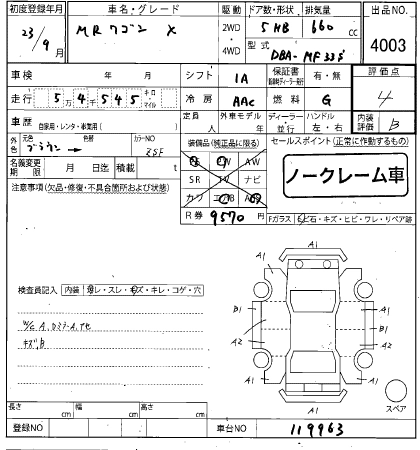 初度登録年月 車名・グレード 駆動 ドア数・形状 排気量 出品NO
23/9月 MRワゴン X 2WD ・ 4WD 5HB 660cc 4003
型式 DBA-MF33S
車検 年 月 シフト 1A 保証書 有・無 評価点
走行 5万4千545 キロ マイル 冷房 AAC 燃料 G 4
車歴 自家用・レンタ・事業用( ) 定員 人 外車モデル 年 ディーラー・並行 ハンドル 左・右 内装評価 B
外色 元色 ブラウン 色替 カラーNO ZSF 装備品(純正品に限る) セールスポイント(正常に作動するもの)
名義変更期限 月 日迄 積載 t SR TV ナビ ノークレーム車
注意事項(欠品・修復・不具合箇所および状態) R券 9570
Fガラス 飛石・キズ・ヒビ・ワレ・リペア跡
A1
A1 A1
検査員記入 内装 汚レ・スレ・キズ・キレ・コゲ・穴
B1 B1
A2 A2
キズB
A1 A1
A1
スペア
長さ cm 幅 cm 高さ cm
登録NO 車台NO 119963